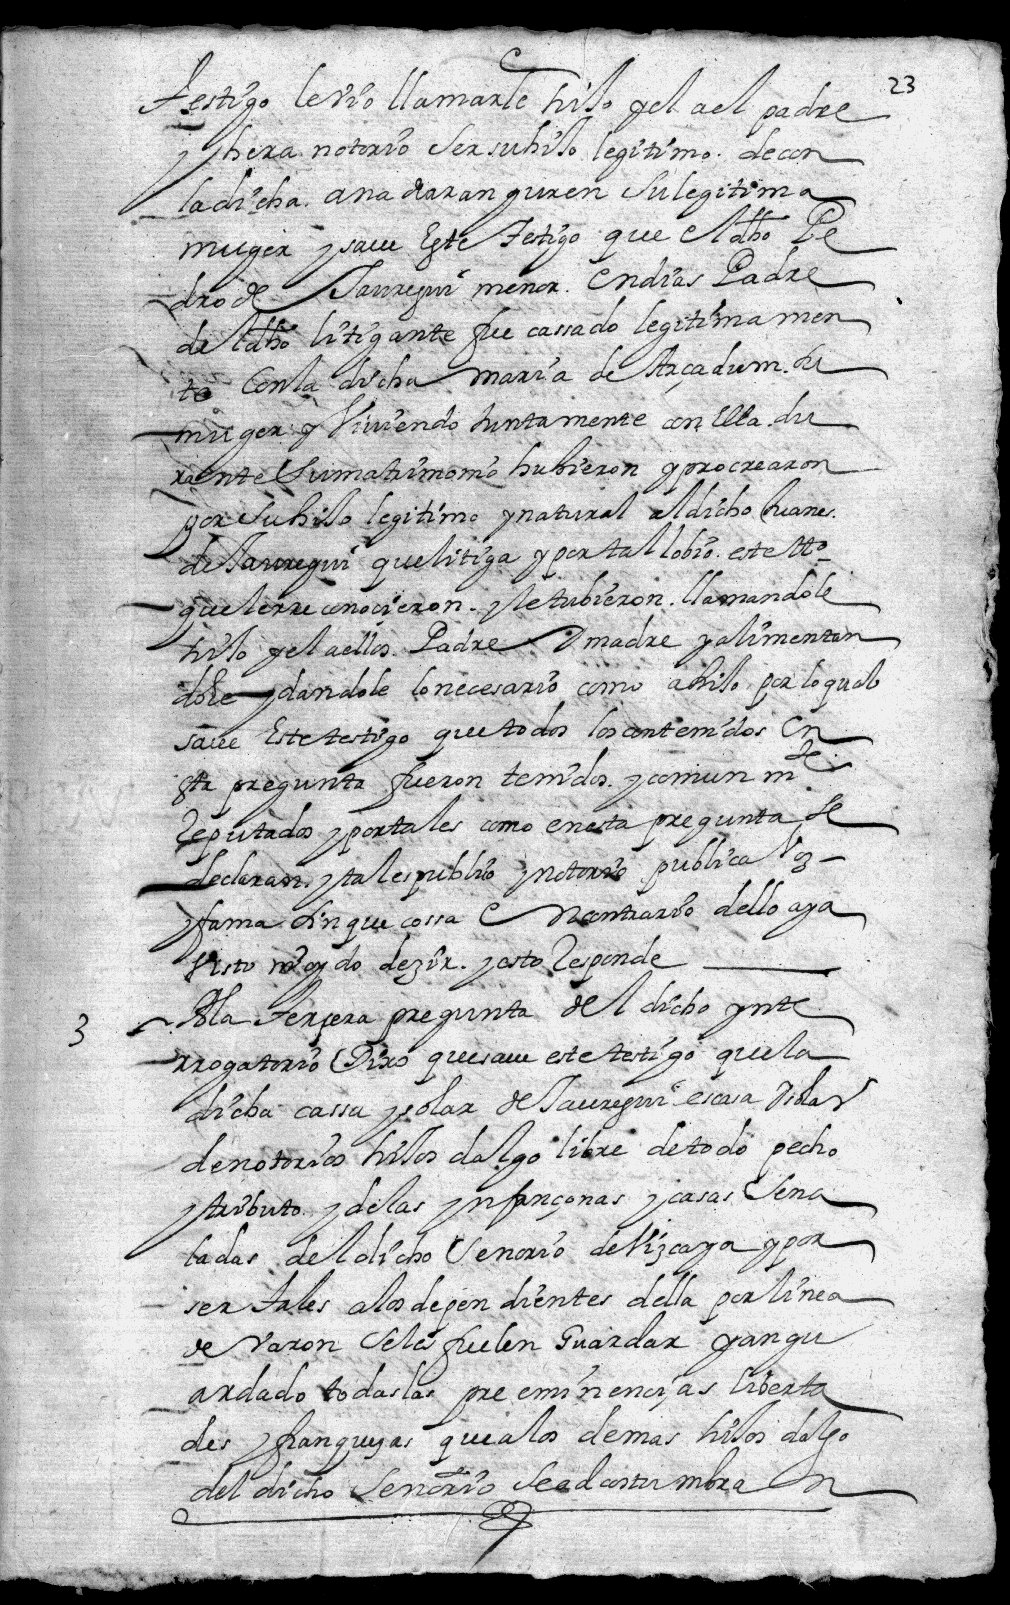 23
testigo le vio llamarle hiJo y el a el padre
y hera notorio ser su hiJo legitimo de con
la dicha ana daranguren su legitima
muger y saue Este testigo que el dho Pe
dro de Jauregui menor en dias Padre
del dho litigante fue cassado legitimamen
te con la dicha maria de Arçadum su
muger y Viuiendo Juntamente con Ella du
rante su matrimonio hubieron y procrearon
por su hiJo legitimo y natural al dicho Juanes
de Jauregui que litiga y por tal lo bio este tto
que le rreconocieron y le tubieron llamandole
hiJo y el a ellos Padre y madre y alimentan
dole y dandole lo necesario como a hiJo por lo qual
saue Este testigo que todos los contenidos En
esta pregunta fueron tenidos y comun mte
Reputados y por tales como en esta pregunta se
declaran y tal es publio y notorio publica Voz
y fama sin que cossa En contrario dello aya
Visto ni oydo dezir y esto Responde
3 A la terçera pregunta del dicho ynte
rrogatorio Dixo que saue este testigo que la
dicha cassa y solar de Jauregui es casa y solar
de notorios hiJos dalgo libre de todo pecho
y tributo y de las ynfançonas y casas Sena
ladas del dicho Senorio de Vizcaya y por
ser tales a los dependientes della por linea
de Varon se les suelen Guardar y an gu
ardado todas las preeminençias liberta
des y franqueças que a los demas hiJos dalgo
del dicho Senorio se adcostumbra n